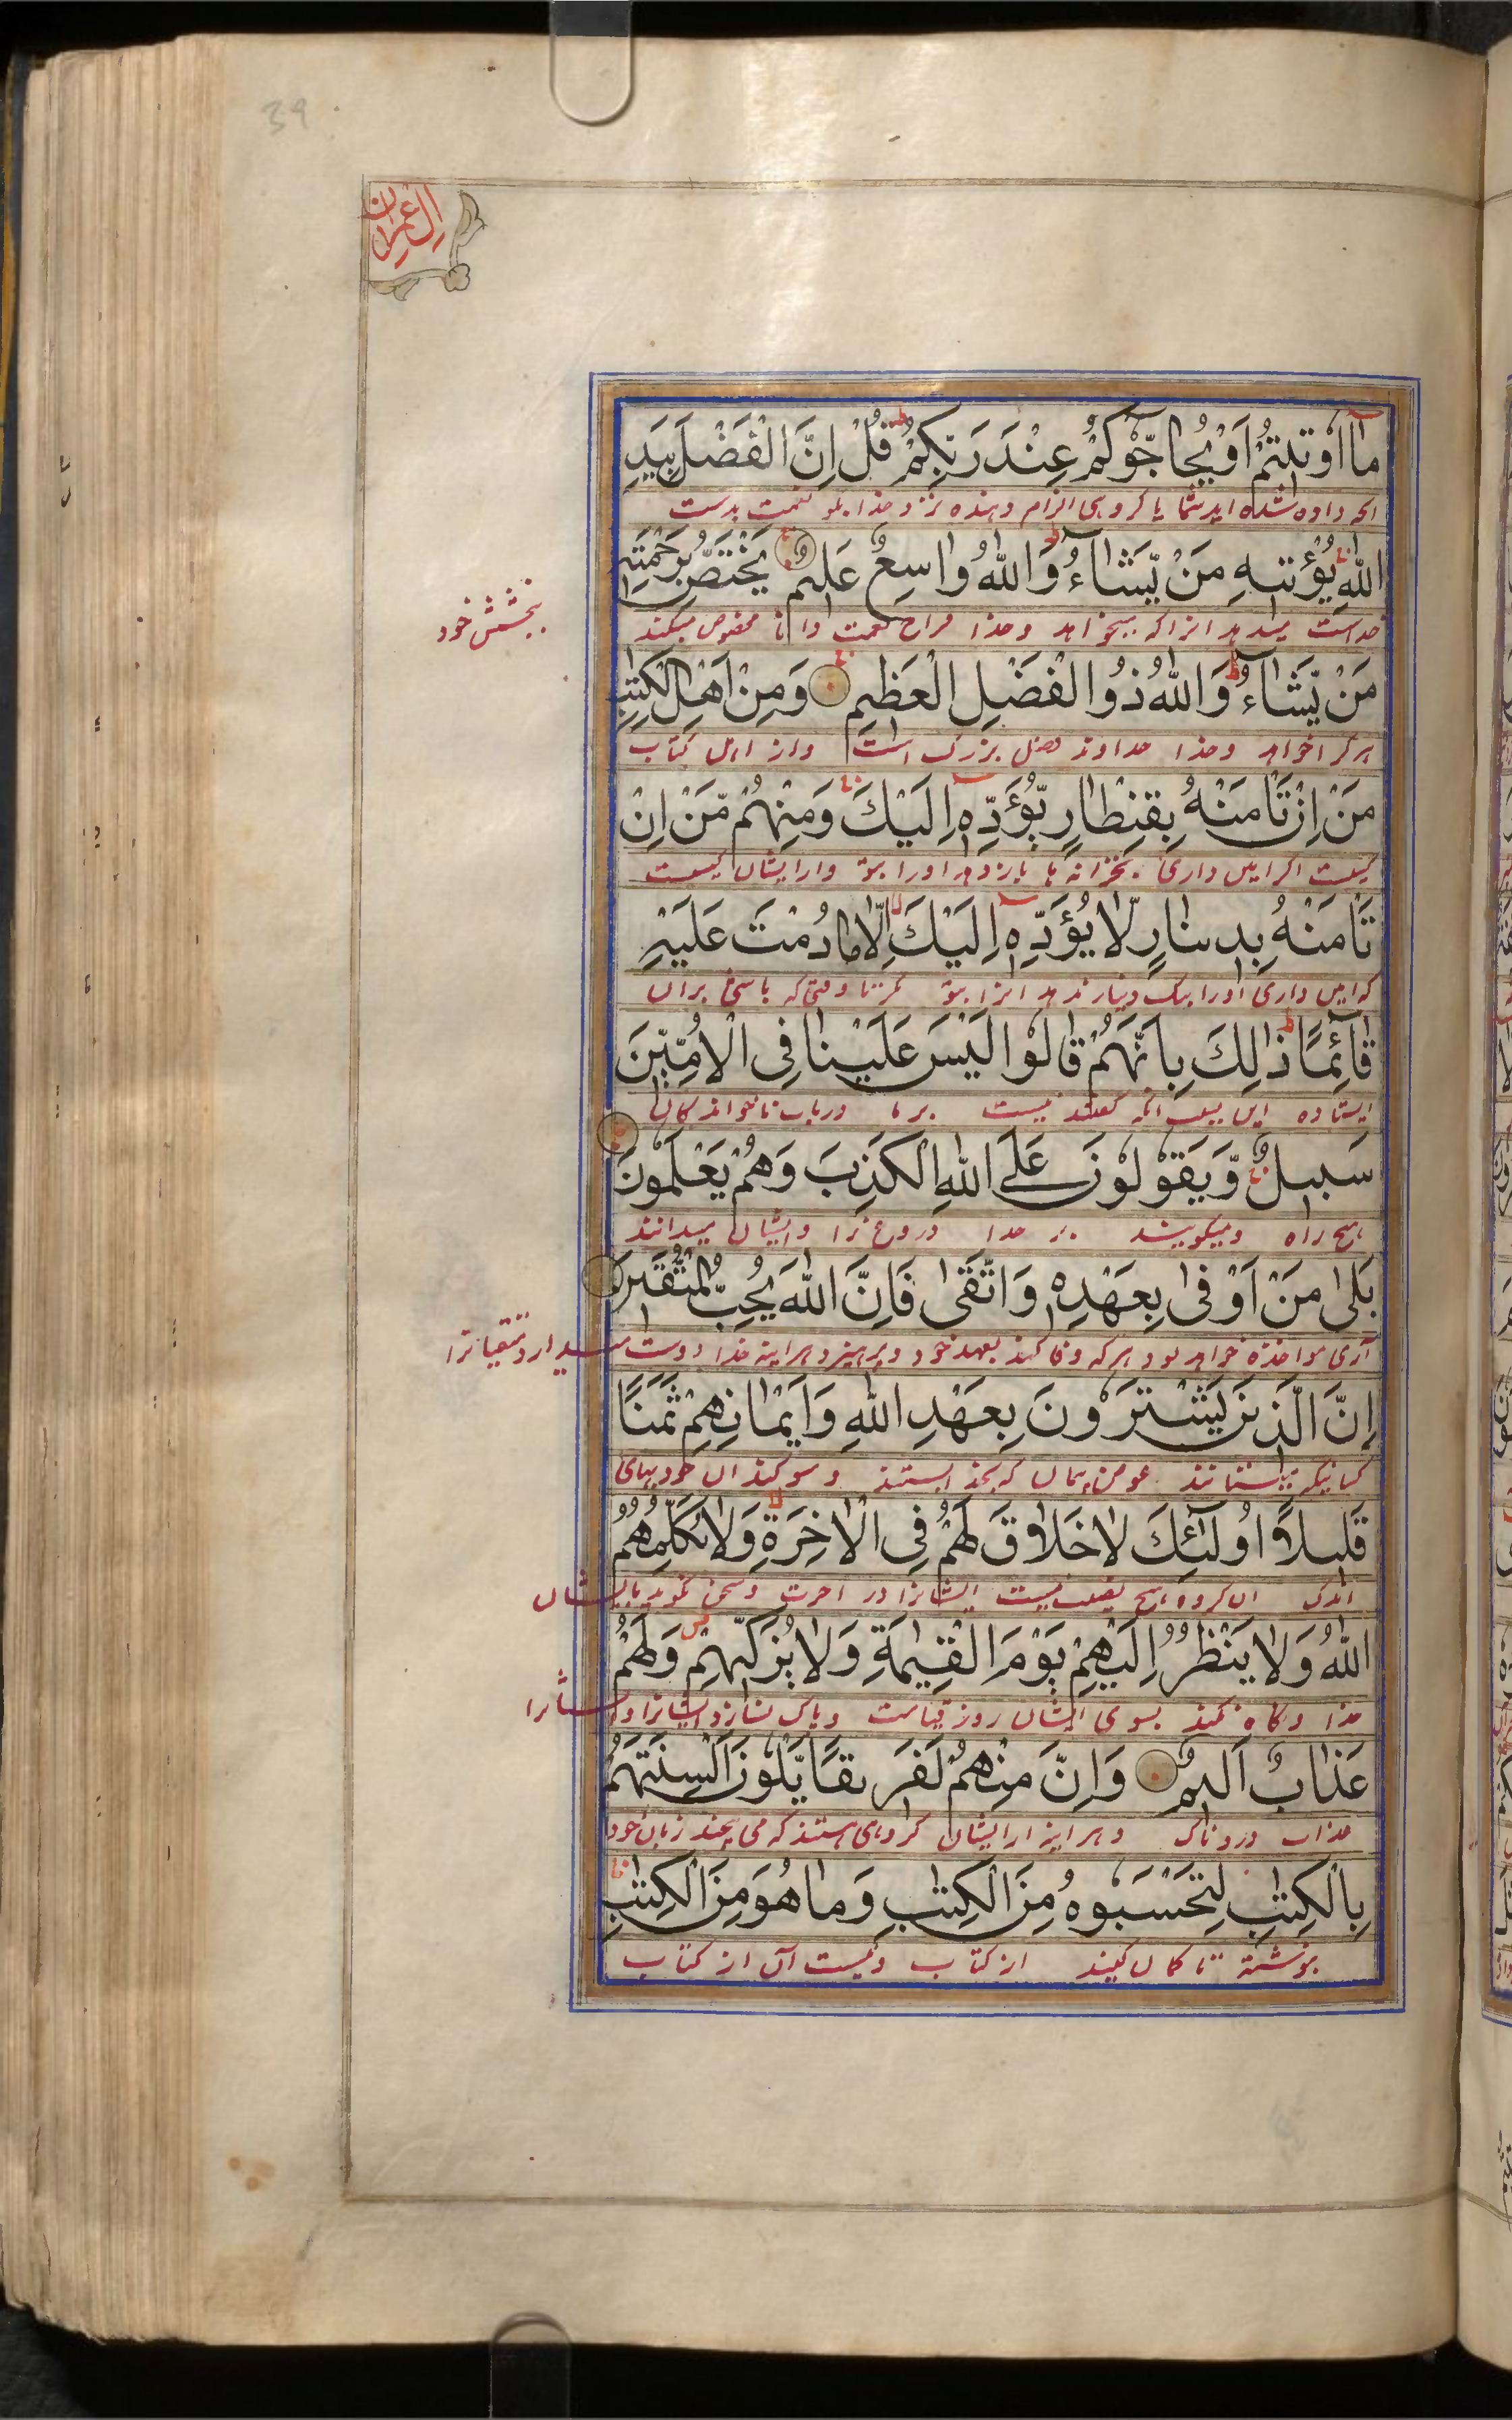 39
ال عمران
مَا اُوْتِيْتُمْ اَوْ يُحَاجُّوْكُمْ عِنْدَ رَبِّكُمْ قُلْ اِنَّ الْفَضْلَ بِيَدِ
انچه داده شده اید شما یا کروهی الزام دهنده نزد خدا بگو نعمت بدست
اللهِ يُؤْتِيهِ مَنْ يَّشَاءُ وَاللهُ وَاسِعٌ عَلِيمٌ يَخْتَصُّ بِرَحْمَتِهِ
خداست میدهد انرا که میخواهد و خدا فراخ نعمت دانا مخصوص میکند
ببخشش خود
مَنْ يَّشَاءُ وَاللهُ ذُو الْفَضْلِ الْعَظِيمِ وَمِنْ اَهْلِ الْكِتٰبِ
هرکرا خواهد و خدا خداوند فضل بزرک است و از اهل کتاب
مَنْ اِنْ تَاْمَنْهُ بِقِنْطَارٍ يُّؤَدِّهِ اِلَيْكَ وَمِنْهُمْ مَّنْ اِنْ
کیست اگر امین داری بخزانه باز دهد اورا بتو و از ایشان کیست
تَاْمَنْهُ بِدِيْنَارٍ لَّا يُؤَدِّهِ اِلَيْكَ اِلَّا مَا دُمْتَ عَلَيْهِ
که امین داری اورا بیک دینار ندهد انرا بتو مگر تا وقتی که باشی بران
قَآئِمًا ذٰلِكَ بِاَنَّهُمْ قَالُوا لَيْسَ عَلَيْنَا فِى الْاُمِّيّٖنَ
ایستاده این بسبب انکه گفتند نیست بر ما در باب ناخواندکان
سَبِيلٌ وَّيَقُوْلُوْنَ عَلَى اللهِ الْكَذِبَ وَهُمْ يَعْلَمُونَ
هیچ راه و میکویند بر خدا دروغ را و ایشان میدانند
بَلٰى مَنْ اَوْفٰى بِعَهْدِهِ وَاتَّقٰى فَاِنَّ اللهَ يُحِبُّ الْمُتَّقِيْنَ
آری مواخذه خواهد بود هرکه وفا کند بعهد خود و پرهیزد هراینه خدا دوست میدارد متقیانرا
اِنَّ الَّذِيْنَ يَشْتَرُوْنَ بِعَهْدِ اللهِ وَاَيْمَانِهِمْ ثَمَنًا
کسانیکه میستانند عوض پیمان که بخدا بستند و سوکندان خود بهای
قَلِيلًا اُولٰئِكَ لَا خَلَاقَ لَهُمْ فِى الْاٰخِرَةِ وَلَا يُكَلِّمُهُمُ
اندک ان کروه هیچ نصیب نیست ایشانرا در اخرت و سخن نکوید با ایشان
اللهُ وَلَا يَنْظُرُ اِلَيْهِمْ يَوْمَ الْقِيٰمَةِ وَلَا يُزَكِّيْهِمْ وَلَهُمْ
خدا و نکاه نکند بسوی ایشان روز قیامت و پاک نسازد ایشانرا و ایشانرا
عَذَابٌ اَلِيمٌ وَاِنَّ مِنْهُمْ لَفَرِيْقًا يَّلْوُوْنَ اَلْسِنَتَهُمْ
عذاب دردناک و هراینه از ایشان کروهی هستند که می پیچند زبان خود
بِالْكِتٰبِ لِتَحْسَبُوهُ مِنَ الْكِتٰبِ وَمَا هُوَ مِنَ الْكِتٰبِ
بنوشته تا کمان کنید از کتاب و نیست آن از کتاب